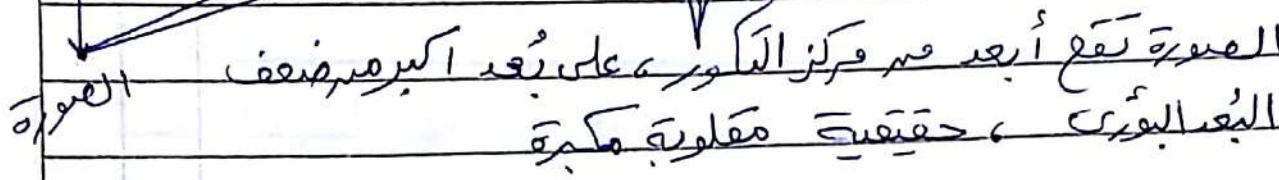 الصورة تقع أبعد من مركز التكور، على بُعد اكبر من ضعف
البُعد البؤرى، حقيقية مقلوبة مكبرة
الصورة